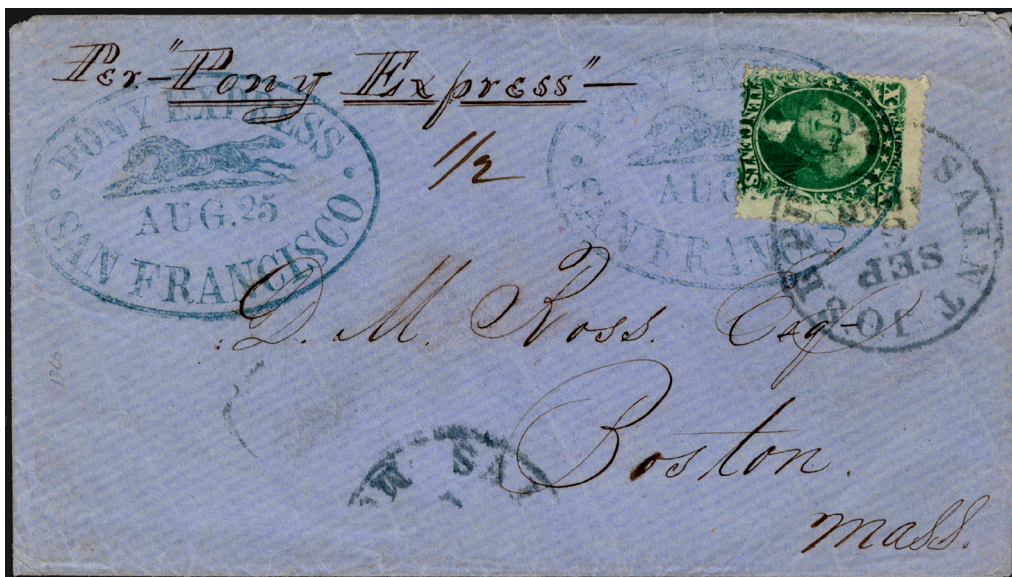 Per "Pony Express"
1/2
PONY EXPRESS
AUG. 25
SAN FRANCISCO
PONY EX
AUG
SAN FRANCIS
TEN CENTS
X
SAINT JOSEPH
SEP
D. M. Ross. Esq
Boston.
Mass.
SA